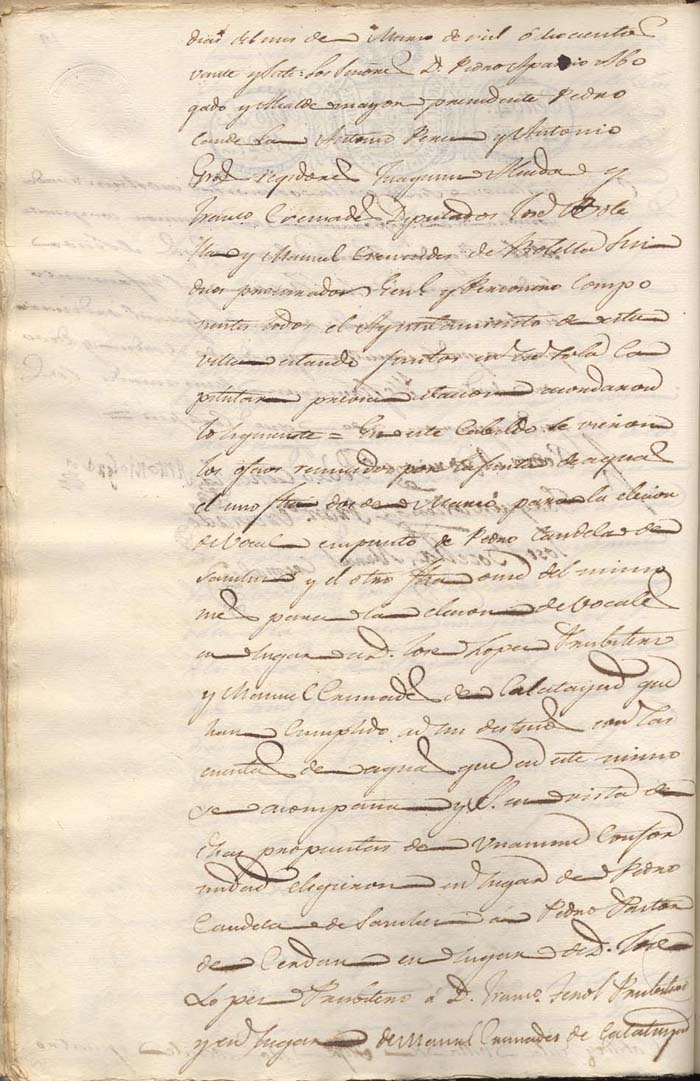 dias del mes de Marzo de mil ochocientos
veinte y siete: Los Señores D. Pedro Aparicio Abo
gado y Alcalde mayor presidente Pedro
Candela Antonio Perez y Antonio
Gras regidores Joaquin Almada y
Franco Cremades Diputados José Bote
lla y Manuel Cremades de Botella Sin
dicos procurador Genl y Personero compo
nentes todos el Ayuntamiento de esta
villa estando juntos en su Sala Ca
pitular precia citacion acordaron
lo siguiente = En este Cabildo se vieron
los oficios remitidos por la Junta de aguas
el uno fha dos de Marzo para la elecion
de Vocal empunto de Pedro Candela de
Sambur y el otro fha onse del mismo
mes para la elecion de Vocales
en lugar a D. Jose Lopez Presbitero
y Manuel Cremades de Calatayud que
han Cumplido ad sus destinos con las
cuentas de aguas que en este mismo
se acompana y S.S. en vista de
dhas propuestas de Unanime Confor
midad eligieron en lugar de Pedro
Candela de Sambur á Pedro Pastor
de Cerdan en lugar de D. Jose
Lopez Presbitero á D. Franco Tenol Presbitero
y en lugar de Manuel Cremades de Calatayud